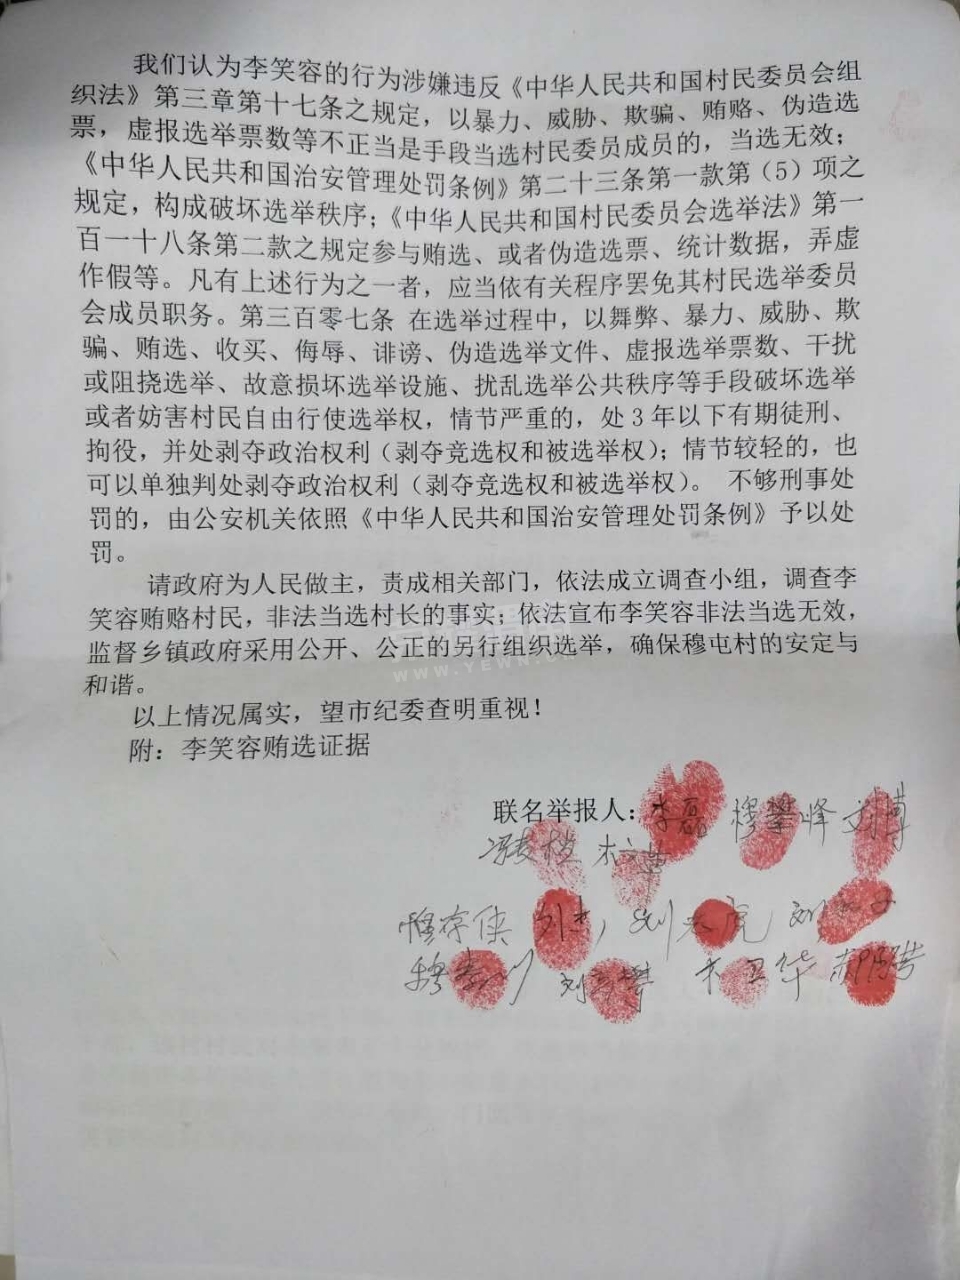 我们认为李笑容的行为涉嫌违反《中华人民共和国村民委员会组
织法》第三章第十七条之规定，以暴力、威胁、欺骗、贿赂、伪造选
票，虚报选举票数等不正当是手段当选村民委员成员的，当选无效；
《中华人民共和国治安管理处罚条例》第二十三条第一款第（5）项之
规定，构成破坏选举秩序；《中华人民共和国村民委员会选举法》第一
百一十八条第二款之规定参与贿选、或者伪造选票、统计数据，弄虚
作假等。凡有上述行为之一者，应当依有关程序罢免其村民选举委员
会成员职务。第三百零七条 在选举过程中，以舞弊、暴力、威胁、欺
骗、贿选、收买、侮辱、诽谤、伪造选举文件、虚报选举票数、干扰
或阻挠选举、故意损坏选举设施、扰乱选举公共秩序等手段破坏选举
或者妨害村民自由行使选举权，情节严重的，处3年以下有期徒刑、
拘役，并处剥夺政治权利（剥夺竞选权和被选举权）；情节较轻的，也
可以单独判处剥夺政治权利（剥夺竞选权和被选举权）。 不够刑事处
罚的，由公安机关依照《中华人民共和国治安管理处罚条例》予以处
罚。
请政府为人民做主，责成相关部门，依法成立调查小组，调查李
笑容贿赂村民，非法当选村长的事实；依法宣布李笑容非法当选无效，
监督乡镇政府采用公开、公正的另行组织选举，确保穆屯村的安定与
和谐。
WWW.YEWN.CN
以上情况属实，望市纪委查明重视！
附：李笑容贿选证据
联名举报人：李磊 穆攀峰 刘博
穆存侠